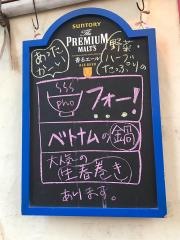 SUNTORY
The
PREMIUM
MALT'S
香るエール
あったかーい
野菜
ハーブ
たっぷりの
pho
フォー!
ベトナムの鍋
大人気の
生春巻き
あります。